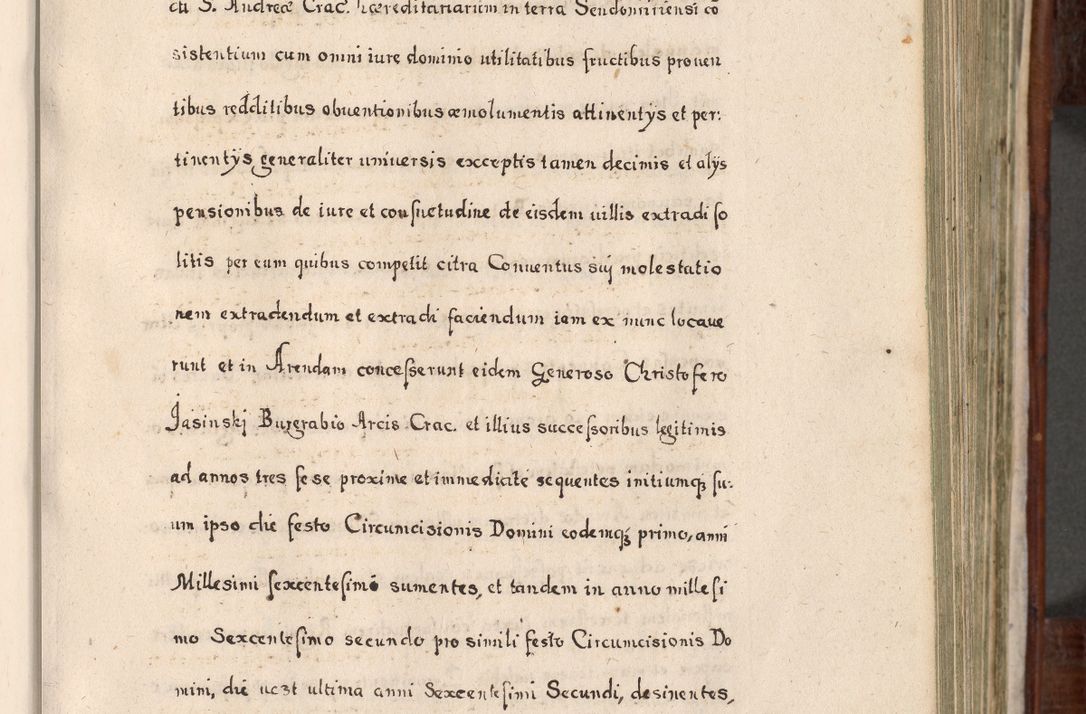 cti S. Andreæ Crac. hæreditariarum in terra Sendomiriensi cō
sistentium cum omni iure dominio utilitatibus fructibus proven
tibus redditibus obuentionibus æmolumentis attinentÿs et per:
tinentÿs generaliter uniuersis exceptis tamen decimis et alÿs
pensionibus de iure et consuetudine de eisdem uillis extradi so
litis per eum quibus competit citra Conuentus sui molestatio
nem extradendum et extradi faciendum iam ex nunc locaue
runt et in Arendam concesserunt eidem Generoso Christofero
Jasinski Burgrabio Arcis Crac. et illius successoribus legitimis
ad annos tres se se proxime et immediate sequentes initiumq; su:
um ipso die festo Circumcisionis Domini eodemq; primo, anni
Millesimi sexcentesimō sumentes, et tandem in anno millesi
mo Sexcentesimo secundo pro simili festo Circumcisionis Do
mini, die ultima anni Sexcentesimi Secundi, desinentes,